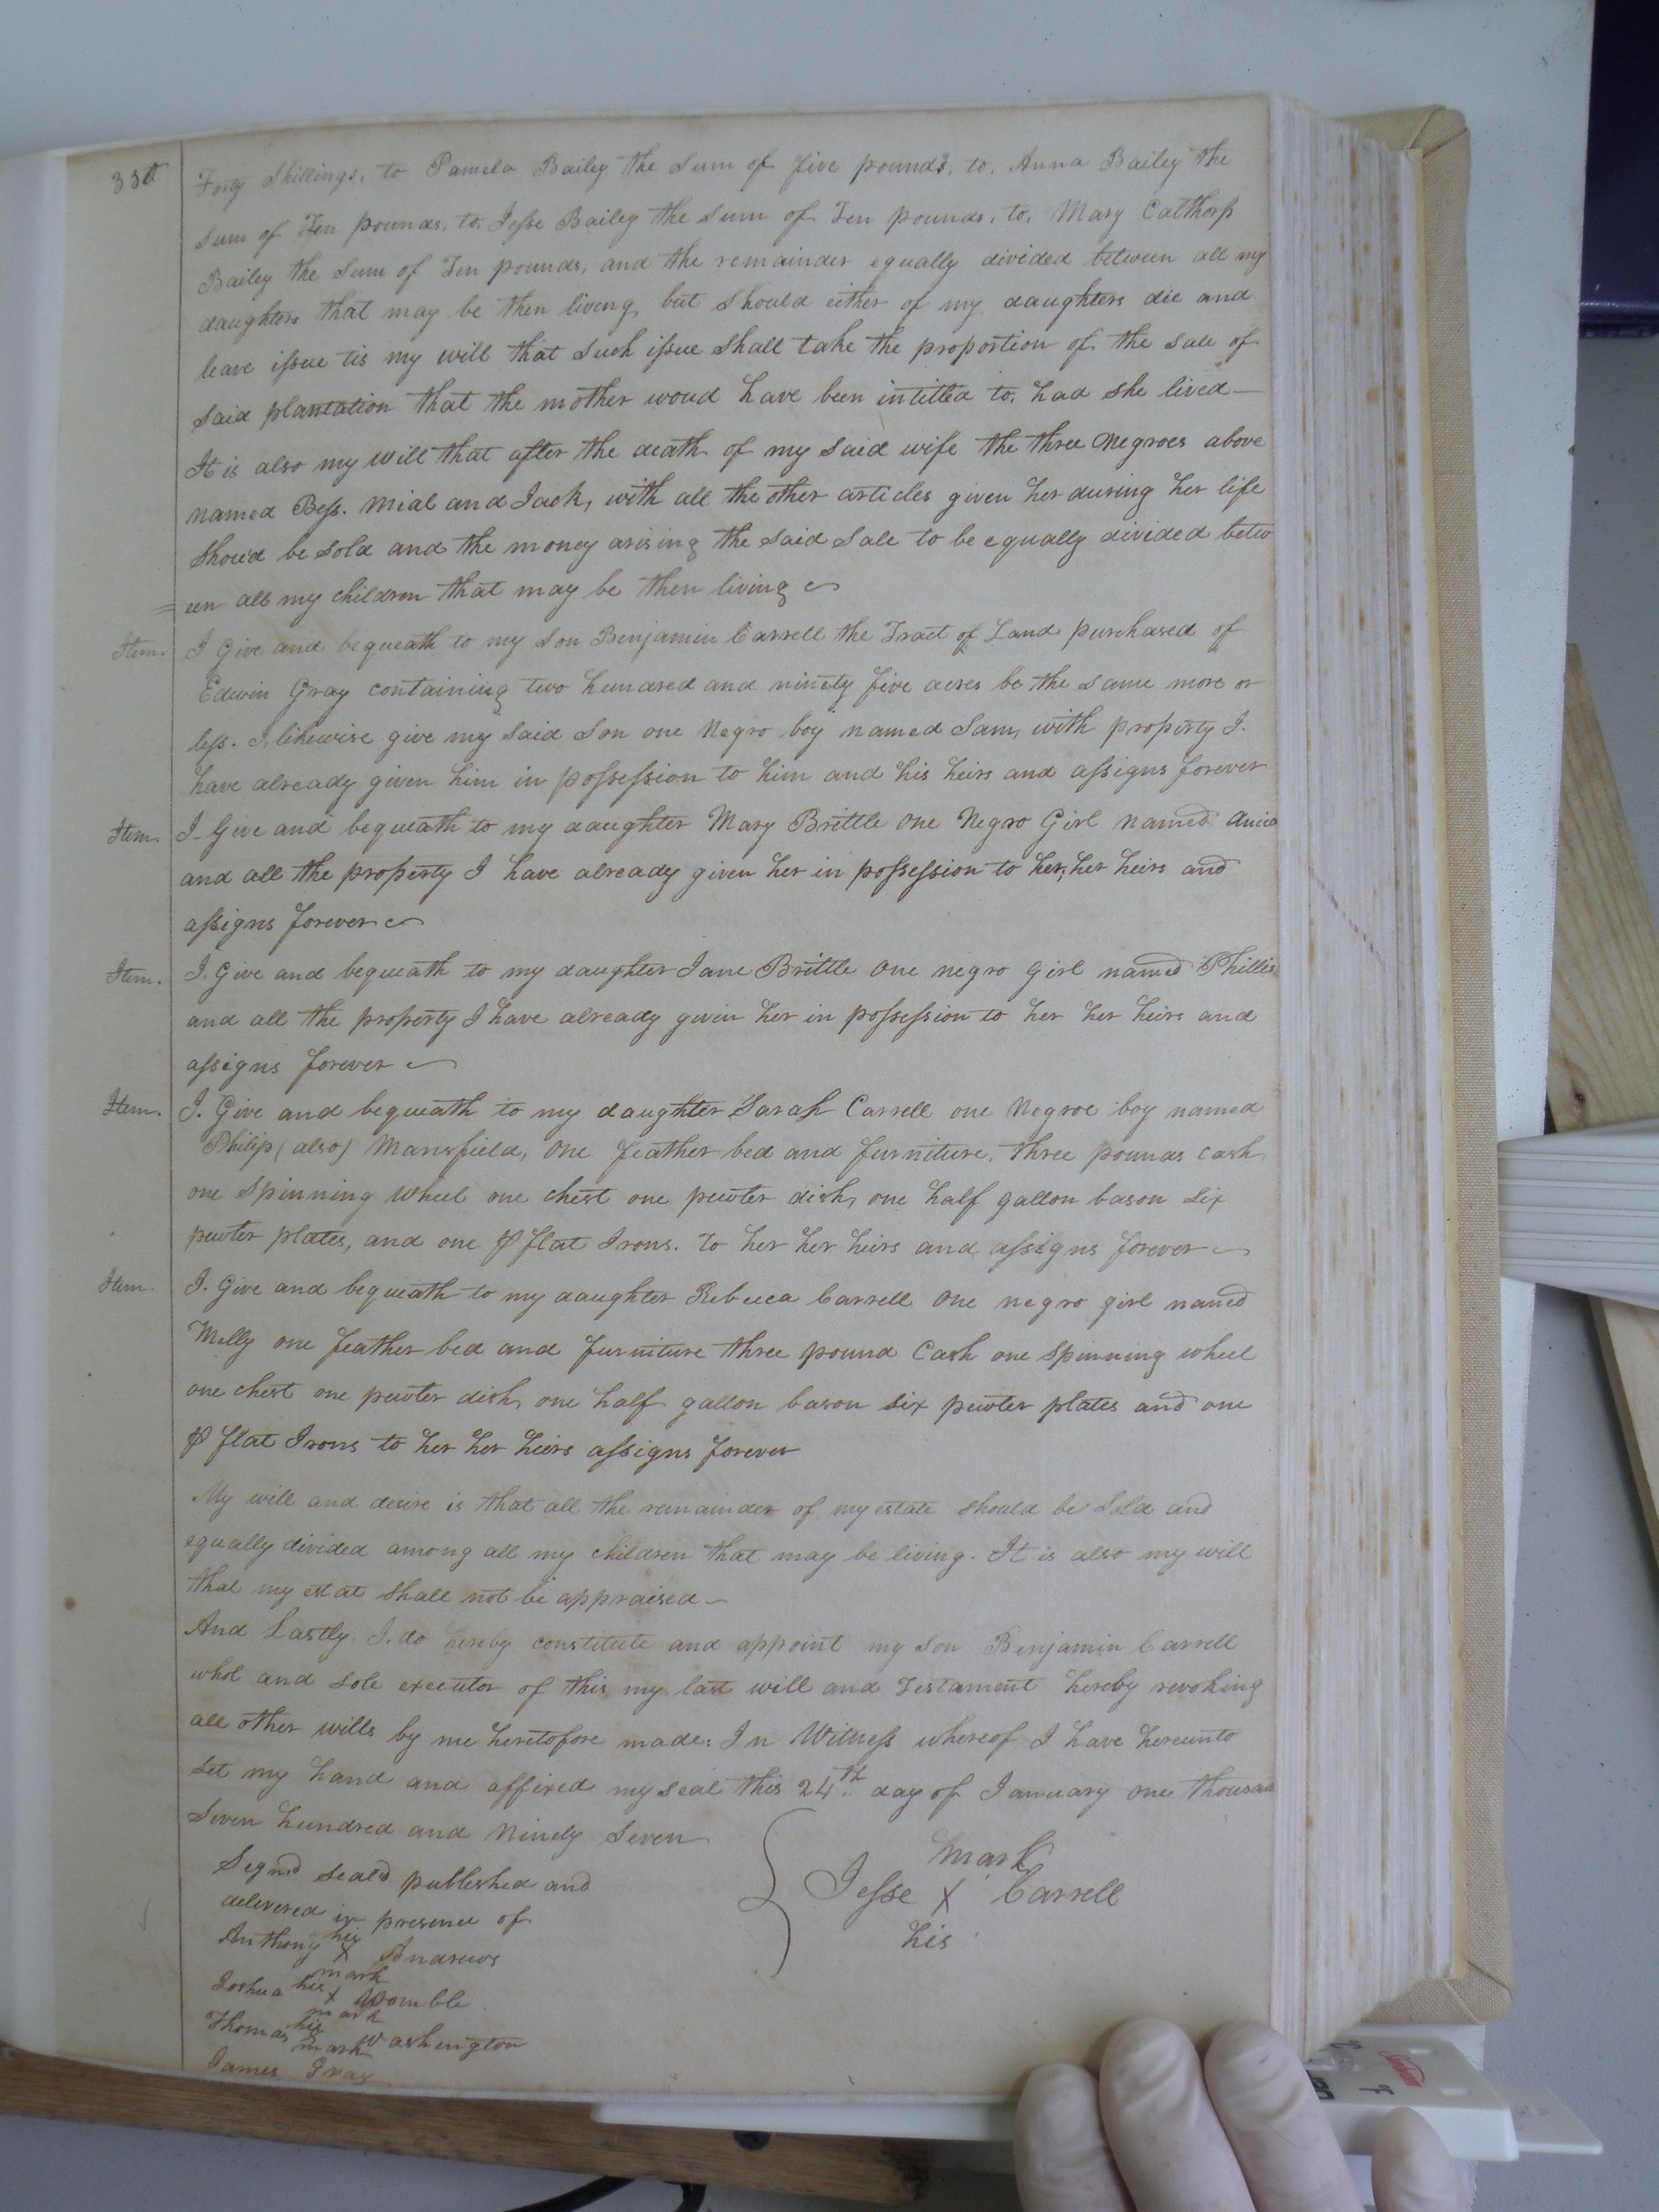 Forty Shillings, to Pamela Bailey the Sum of five pounds, to, Anna Bailey the
sum of Ten pounds, to, Jesse Bailey the sum of Ten pounds, to, Mary Calthorp
Bailey the Sum of Ten pounds, and the remainder equally divided between all my
daughters that may be then living, but should either of my daughters die and
leave issue tis my will that such issue shall take the proportion of the sale of
said plantation that the mother woud have been intitled to, had she lived—
It is also my will that after the death of my said wife the three Negroes above
named Bess. Mial and Jack, with all the other articles given her during her life
shoud be sold and the money arising the said Sale to be equally divided betw
=een all my children that may be then living
Item. I Give and bequeath to my Son Benjamin Carrell the Tract of Land purchased of
Edwin Gray containing two hundred and ninety five acres be the same more or
less. I, likewise give my said Son one Negro boy named Sam, with property I.
have already given him in possession to him and his heirs and assigns forever
Item. I. Give and bequeath to my daughter Mary Brittle one Negro Girl named
and all the property I have already given her in possession to her, her heirs and
assigns forever
Item. I. Give and bequeath to my daughter Jane Brittle One negro Girl named Phillis
and all the property I have already given her in possession to her her heirs and
assigns forever
Item. I. Give and bequeath to my daughter Sarah Carrell one Negroe boy named
Philip (also) Mansfield, One feather bed and furniture, three pounds cash
one Spinning wheel one chest one pewter dish, one half gallon bason six
pewter plates, and one pr flat Irons. To her her heirs and assigns forever
Item. I. Give and bequeath to my daughter Rebecca Carrell One negro girl named
Milly one feather bed and furniture three pound Cash one Spinning wheel
one chest one pewter dish, one half gallon bason six pewter plates and one
pr flat Irons to her her heirs assigns forever
My will and desire is that all the remainder of my estate should be Sold and
equally divided among all my children that may be living. It is also my will
that my estat shall not be appraised—
And Lastly I. do hereby constitute and appoint my Son Benjamin Carrell
whol and sole executor of this my last will and Testament hereby revoking
all other wills by me heretofore made: In Witness whereof I have hereunto
set my hand and affixed my seal this 24th. day of January one thousan
Seven hundred and Ninety Seven
mark
Jesse X Carrell
his
Signd seald published and
delivered in presence of
Anthony his X mark Andrews
Joshua his X mark Womble
Thomas his mark Washington
James Gray